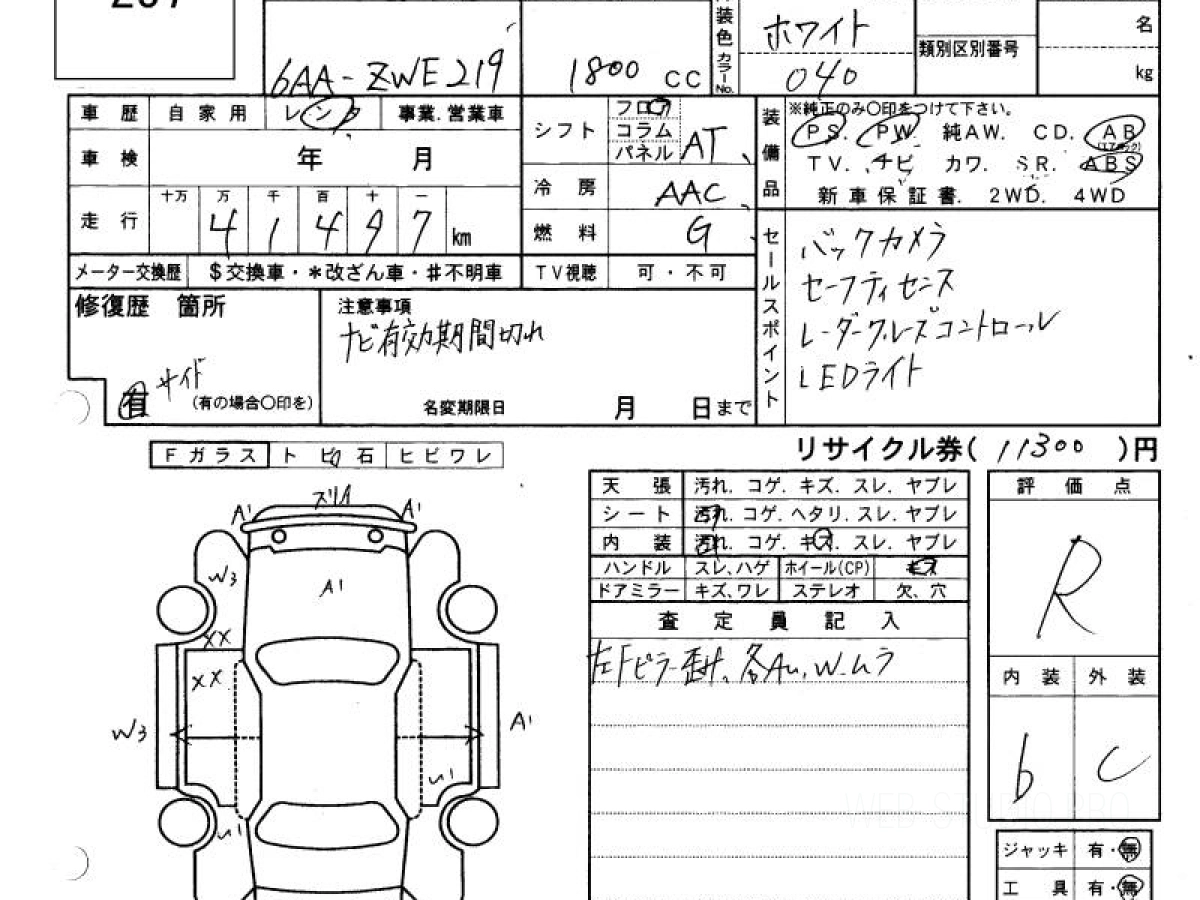 装色 カラーNo.
ホワイト
040
6AA-ZWE219
1800 CC
類別区別番号
名
kg
車歴 自家用 レンタ 事業.営業車
車検 年 月
走行 十万 万 千 百 十 一
4 1 4 9 7 km
メーター交換歴 $交換車・*改ざん車・♯不明車
シフト フロア コラム パネル AT
冷房 AAC
燃料 G
TV視聴 可・不可
装備品
※純正のみ〇印をつけて下さい。
PS. PW. 純AW. CD. AB(エアバック)
TV. ナビ カワ. SR. ABS
新車保証書. 2WD. 4WD
セールスポイント
バックカメラ
セーフティセンス
レーダークルーズコントロール
LEDライト
修復歴 箇所
サイド
有 (有の場合〇印を)
注意事項
ナビ有効期間切れ
名変期限日 月 日まで
リサイクル券( 11300 )円
Fガラス トビ石 ヒビワレ
A' A'
W3 A'
XX
XX
W3 A'
天張 汚れ. コゲ. キズ. スレ. ヤブレ
シート 汚れ. コゲ. ヘタリ. スレ. ヤブレ
内装 汚れ. コゲ. キズ. スレ. ヤブレ
ハンドル スレ、ハゲ ホイール(CP) キズ
ドアミラー キズ、ワレ ステレオ 欠、穴
査定員記入
左Fピラー歪み、各AU、W、ムラ
評価点
R
内装 外装
b C
ジャッキ 有・無
工具 有・無